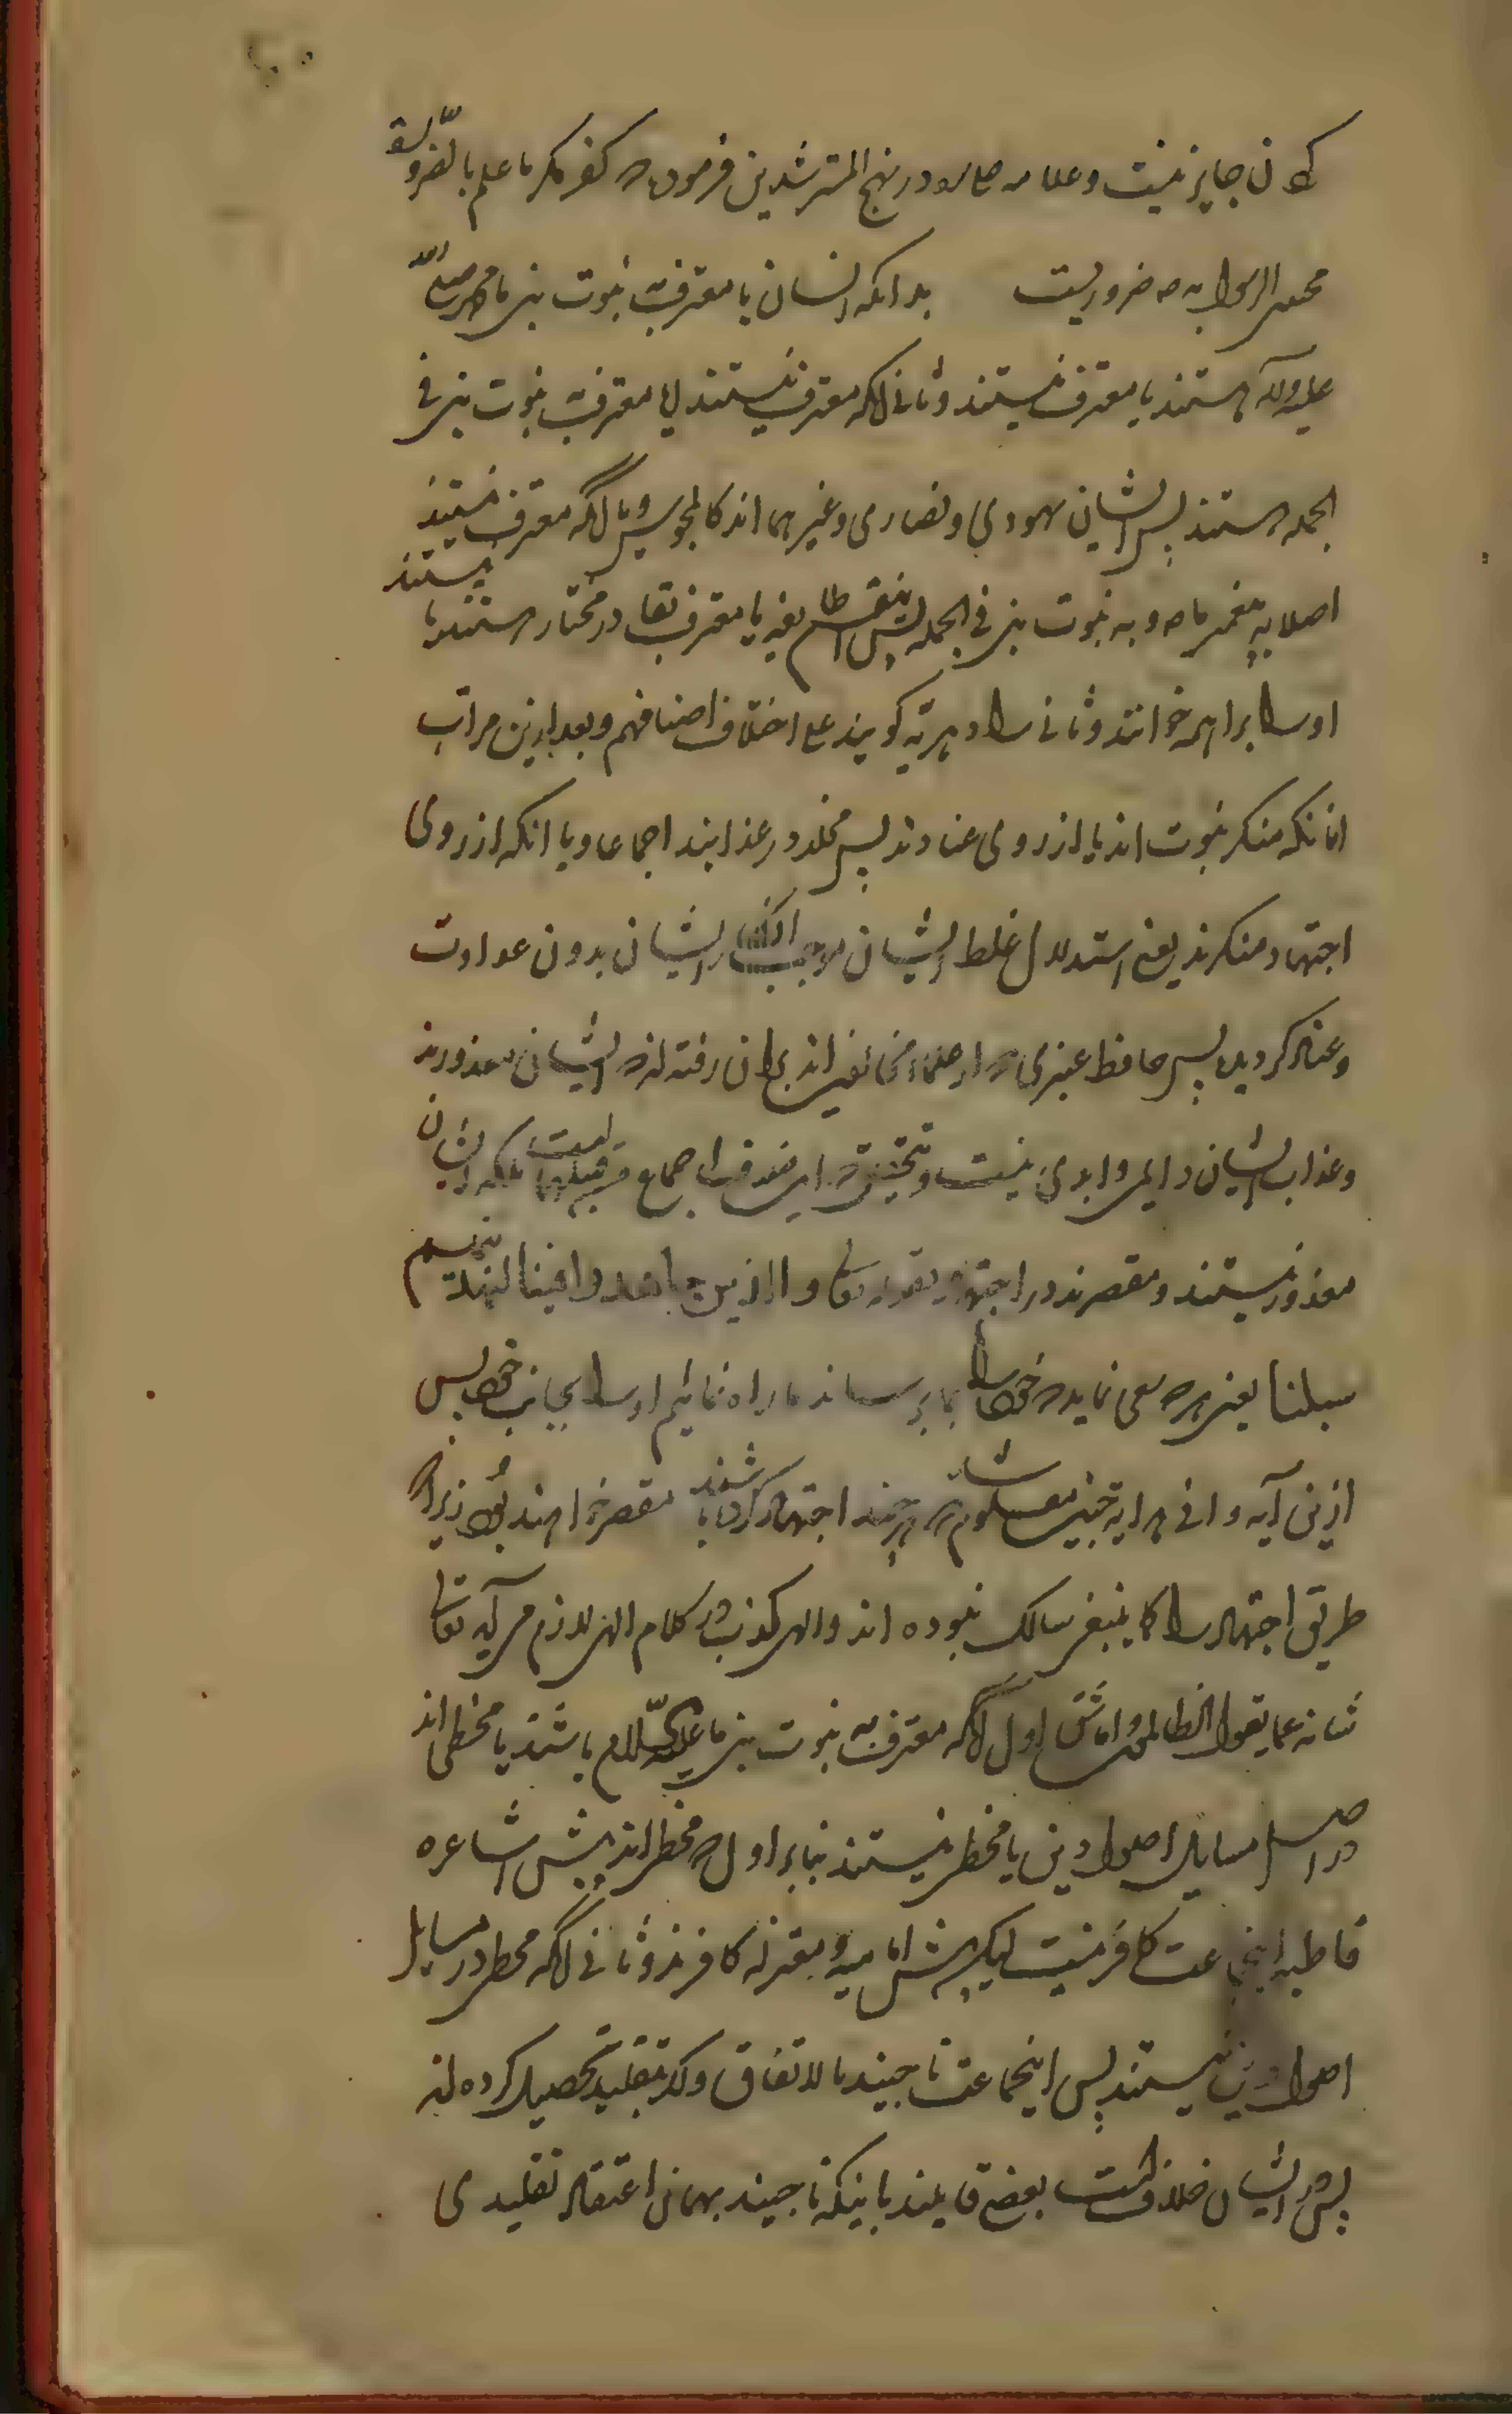 کان جایز نیست و علامه در نهج المسترشدین فرموده کفر منکر ما علم بالضروره
مجی الرسول به ضروریست بدانکه انسان یا معترف به نبوت نبی ما محمد صلی الله
علیه و آله هستند یا معترف نیستند و ثانی آنکه معترف نیستند یا معترف به نبوت نبی فی
الجمله هستند پس ایشان یهودی و نصاری و غیر هما اند کالمجوس و یا آنکه معترف نیستند
اصلا به پیغمبر ما ص و به نبوت نبی فی الجمله پس این طایفه یا معترف بقادر مختار هستند یا نیستند
اول را براهمه خوانند و ثانی را دهریه گویند علی اختلاف اصنافهم و بعد ازین مراتب
آنانکه منکر نبوت اند یا از روی عنادند پس مخلد در عذابند اجماعا و یا آنکه از روی
اجتهاد منکرند یعنی استدلال غلط ایشان موجب انکار ایشان بدون عداوت
و عناد گردیده پس حافظ عنبری که از علماء مخالفین اند بدان رفته اند که ایشان معذورند
و عذاب ایشان دایمی و ابدی نیست و تحقیق که این منعقد اجماع قبلهما بلکه ایشان
معذور نیستند و مقصرند در اجتهاد بقوله تعالی والذین جاهدوا فینا لنهدینهم
سبلنا یعنی هر که سعی نماید که خود را بما برساند ما راه نمائیم او را بجانب خود پس
ازین آیه وافی هدایه چنین معلوم شد که هر چند اجتهاد کرده باشند مقصر خواهند بود زیرا که
طریق اجتهاد را کما ینبغی سالک نبوده اند والا کذب در کلام الهی لازم می آید تعالی
شانه عما یقول الظالمون و اما شق اول آنکه معترف به نبوت نبی ما علیه السلام باشند یا مخطی اند
در اصل مسایل اصول دین یا مخطی نیستند بنابر اول که مخطی اند پیش اشاعره
قاطبه اینجماعت کافر نیست لیک پیش امامیه و معتزله کافرند و ثانی آنکه مخطی در مسایل
اصول دین نیستند پس اینجماعت ناجیند بالاتفاق و اگر بتقلید تحصیل کرده اند
پس در ایشان خلافست بعضی قایلند باینکه ناجیند بهمان اعتقاد تقلیدی